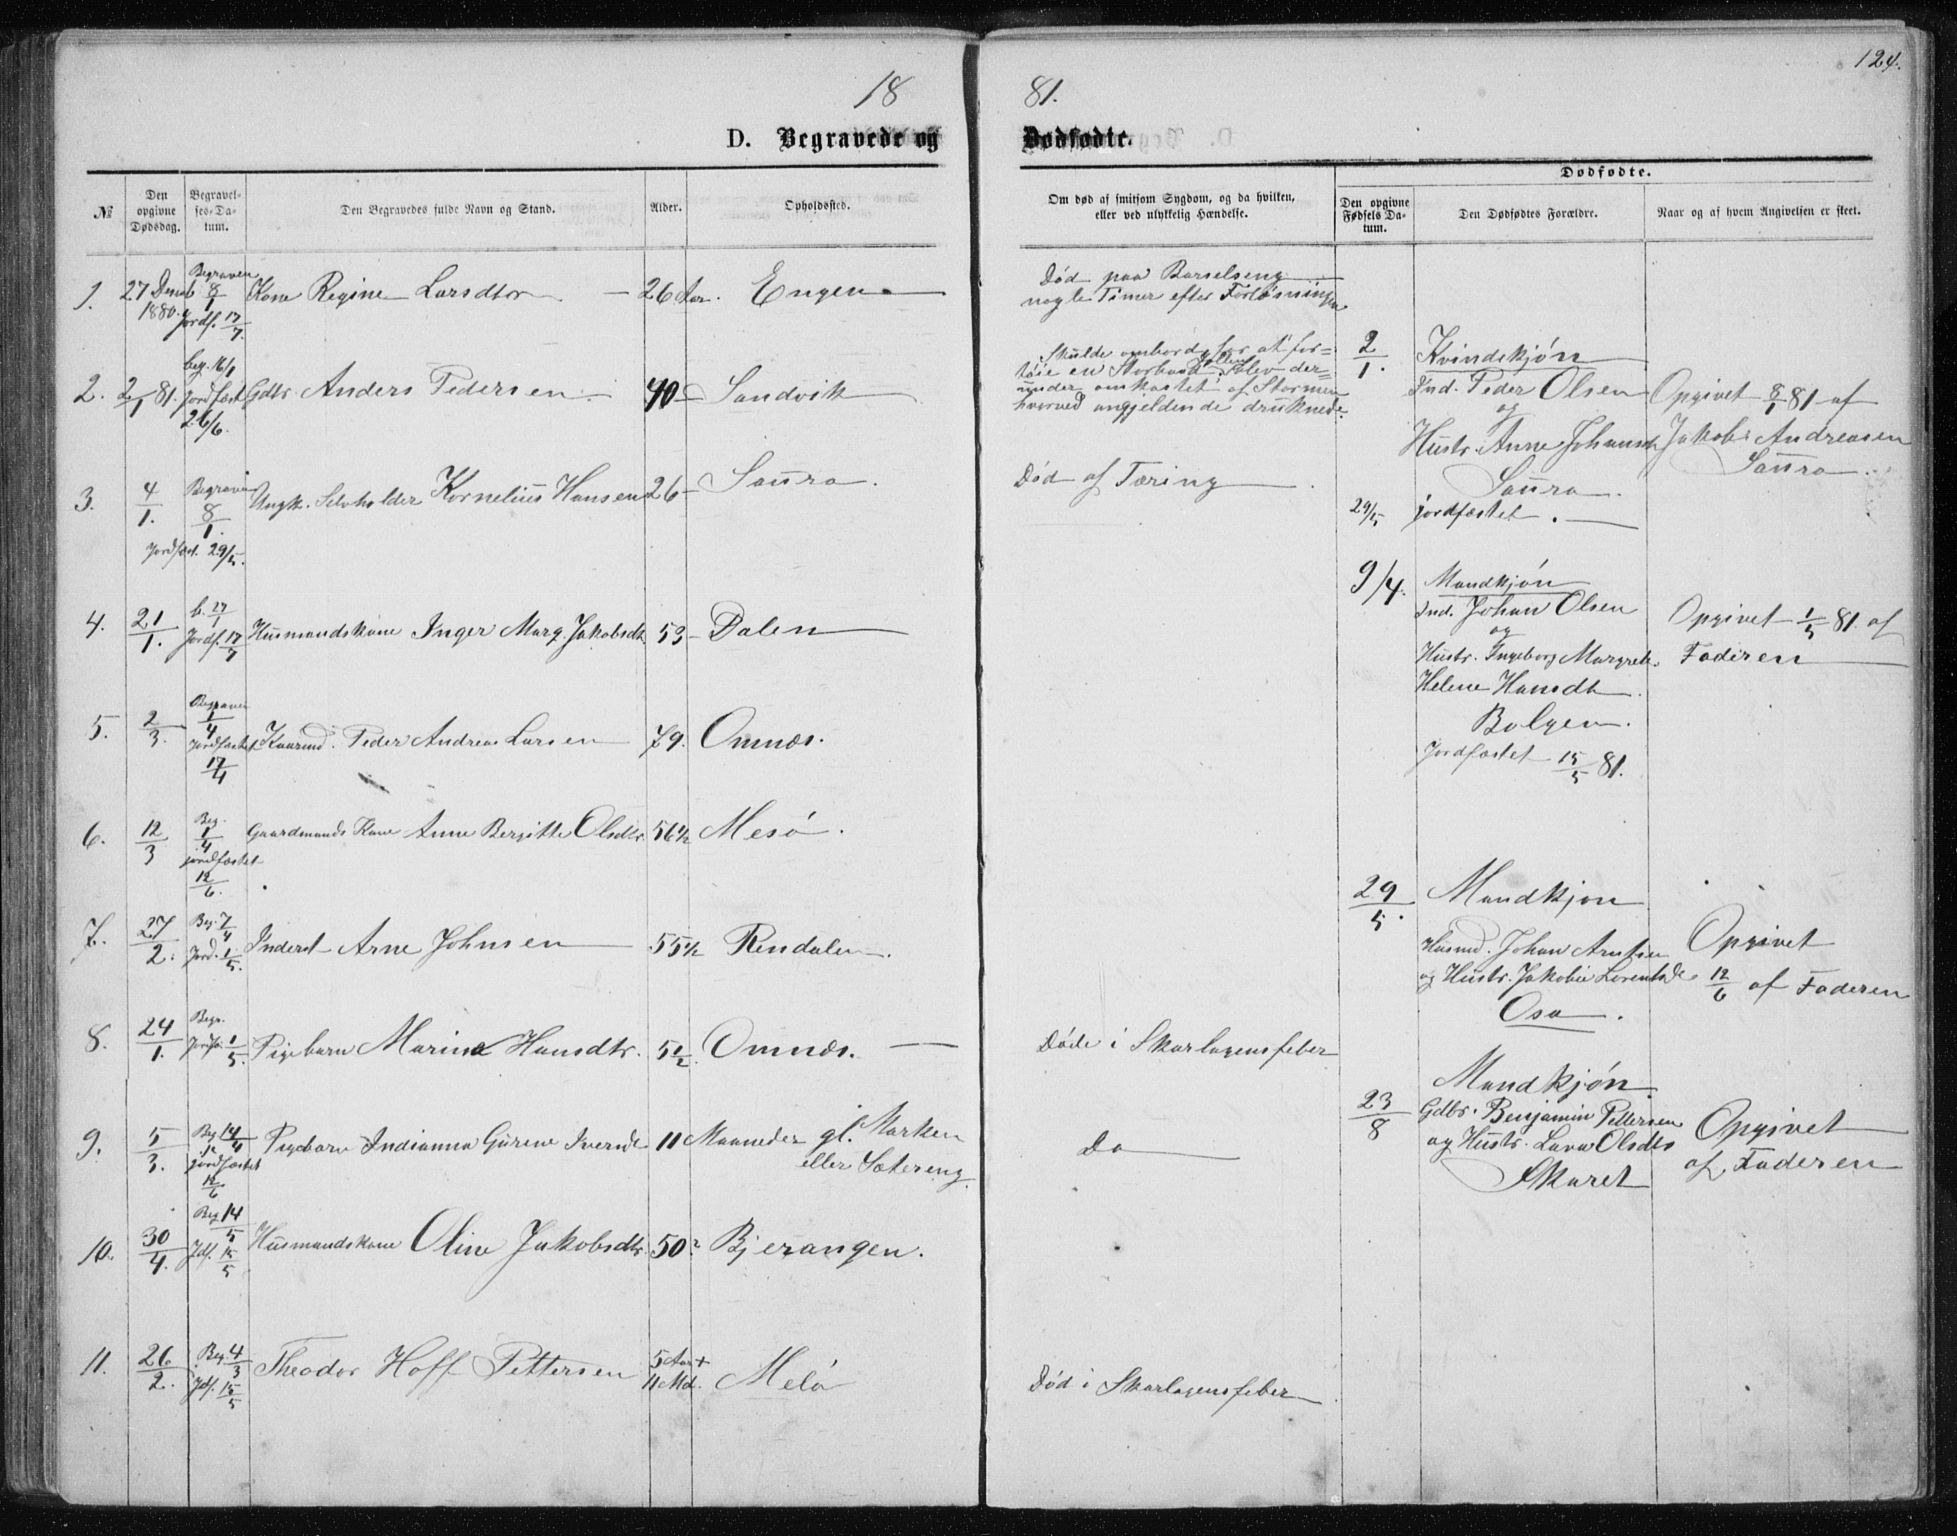 124.
18 81.
D. Begravede og Dødfødte.
№
Den opgivne Dødsdag.
Begravelses-Datum.
Den Begravedes fulde Navn og Stand.
Alder.
Opholdssted.
Om død af smitsom Sygdom, og da hvilken, eller ved ulykkelig Hændelse.
Dødfødte.
Den opgivne Fødsels Datum.
Den Dødfødtes Forældre.
Naar og af hvem Angivelsen er skeet.
1. 27 Decemb 1880. Begraven 8/1 Jordf. 17/7 Kone Regine Larsdtr 26 Aar. Engen
Død paa Barselseng
nogle Timer efter Forløsningen
2. 2/1 81. beg. 16/1 Jordfæst 26/6. Gdbr. Anders Pedersen 40 Sandvik
Skulde ombord for at for=
tøie en Storbaad Jollen blev der=
under omkastet af Stormen
hvorved angjeldende druknede.
3. 4/1. Begraven 8/1. Jordfæst. 29/5. Ungk. Selvholder Kornelius Hansen 26 Saura.
Død af Tæring
4. 21/1. b. 27/1 Jordf. 17/7 Husmandskone Inger Marg. Jakobsdt. 53 Dalen
5. 2/3. Begraven 1/4 jordfæstet 17/4 Kaarmd. Peder Andreas Larsen 79. Omnæs.
6. 12/3 Beg. 1/4 jordfæstet 12/6. Gaardmands Kone Anne Bergitte Olsdtr. 56 1/2 Mesø.
7. 27/2. Beg. 7/4 Jord. 1/5. Inderst Arne Johnsen 55 1/2 Rendalen.
8. 24/1. Begr. Jordfæ. 1/5. Pigebarn Marina Hansdtr. 5 1/2. Omnæs.
Døde i Skarlagensfeber
9. 5/3. Beg 14/4 jordfæstet 12/6 Pigebarn Indianna Gurene Iversdt 11 Maaneder gl. Marken
eller Sætereng.
Do
10. 30/4. Beg 14/5 Jdf. 15/5 Husmandskone Oline Jakobsdtr. 50? Bjerangen.
11. 26/2. Beg. 4/3 Jdf. 15/5 Theodor Hoff Pettersen 5 Aar + 11 Md. Melø
Død i Skarlagensfeber
2/1. Kvindekjøn
Ind. Peder Olsen
og
Hustr. Anne Johansdt
Saura.
29/5 jordfæstet.
Opgivet 8/1 81 af
Jakob Andreasen
Saura
9/4. Mandkjøn
Ind. Johan Olsen
og
Hustr. Ingeborg Margrete
Helene Hansdt.
Bolgen.
Jordfæstet 15/5 81.
Opgivet 1/5 81. af
Faderen
29/5. Mandkjøn
Husmd. Johan Arntsen
og Hustr. Jakobie Lorentsdt.
Osa.
Opgivet
12/6 af Faderen
23/8 Mandkjøn
Gdbr. Benjamin Pettersen
og Hustr. Lava Olsdtr
Skaret
Opgivet
af Faderen